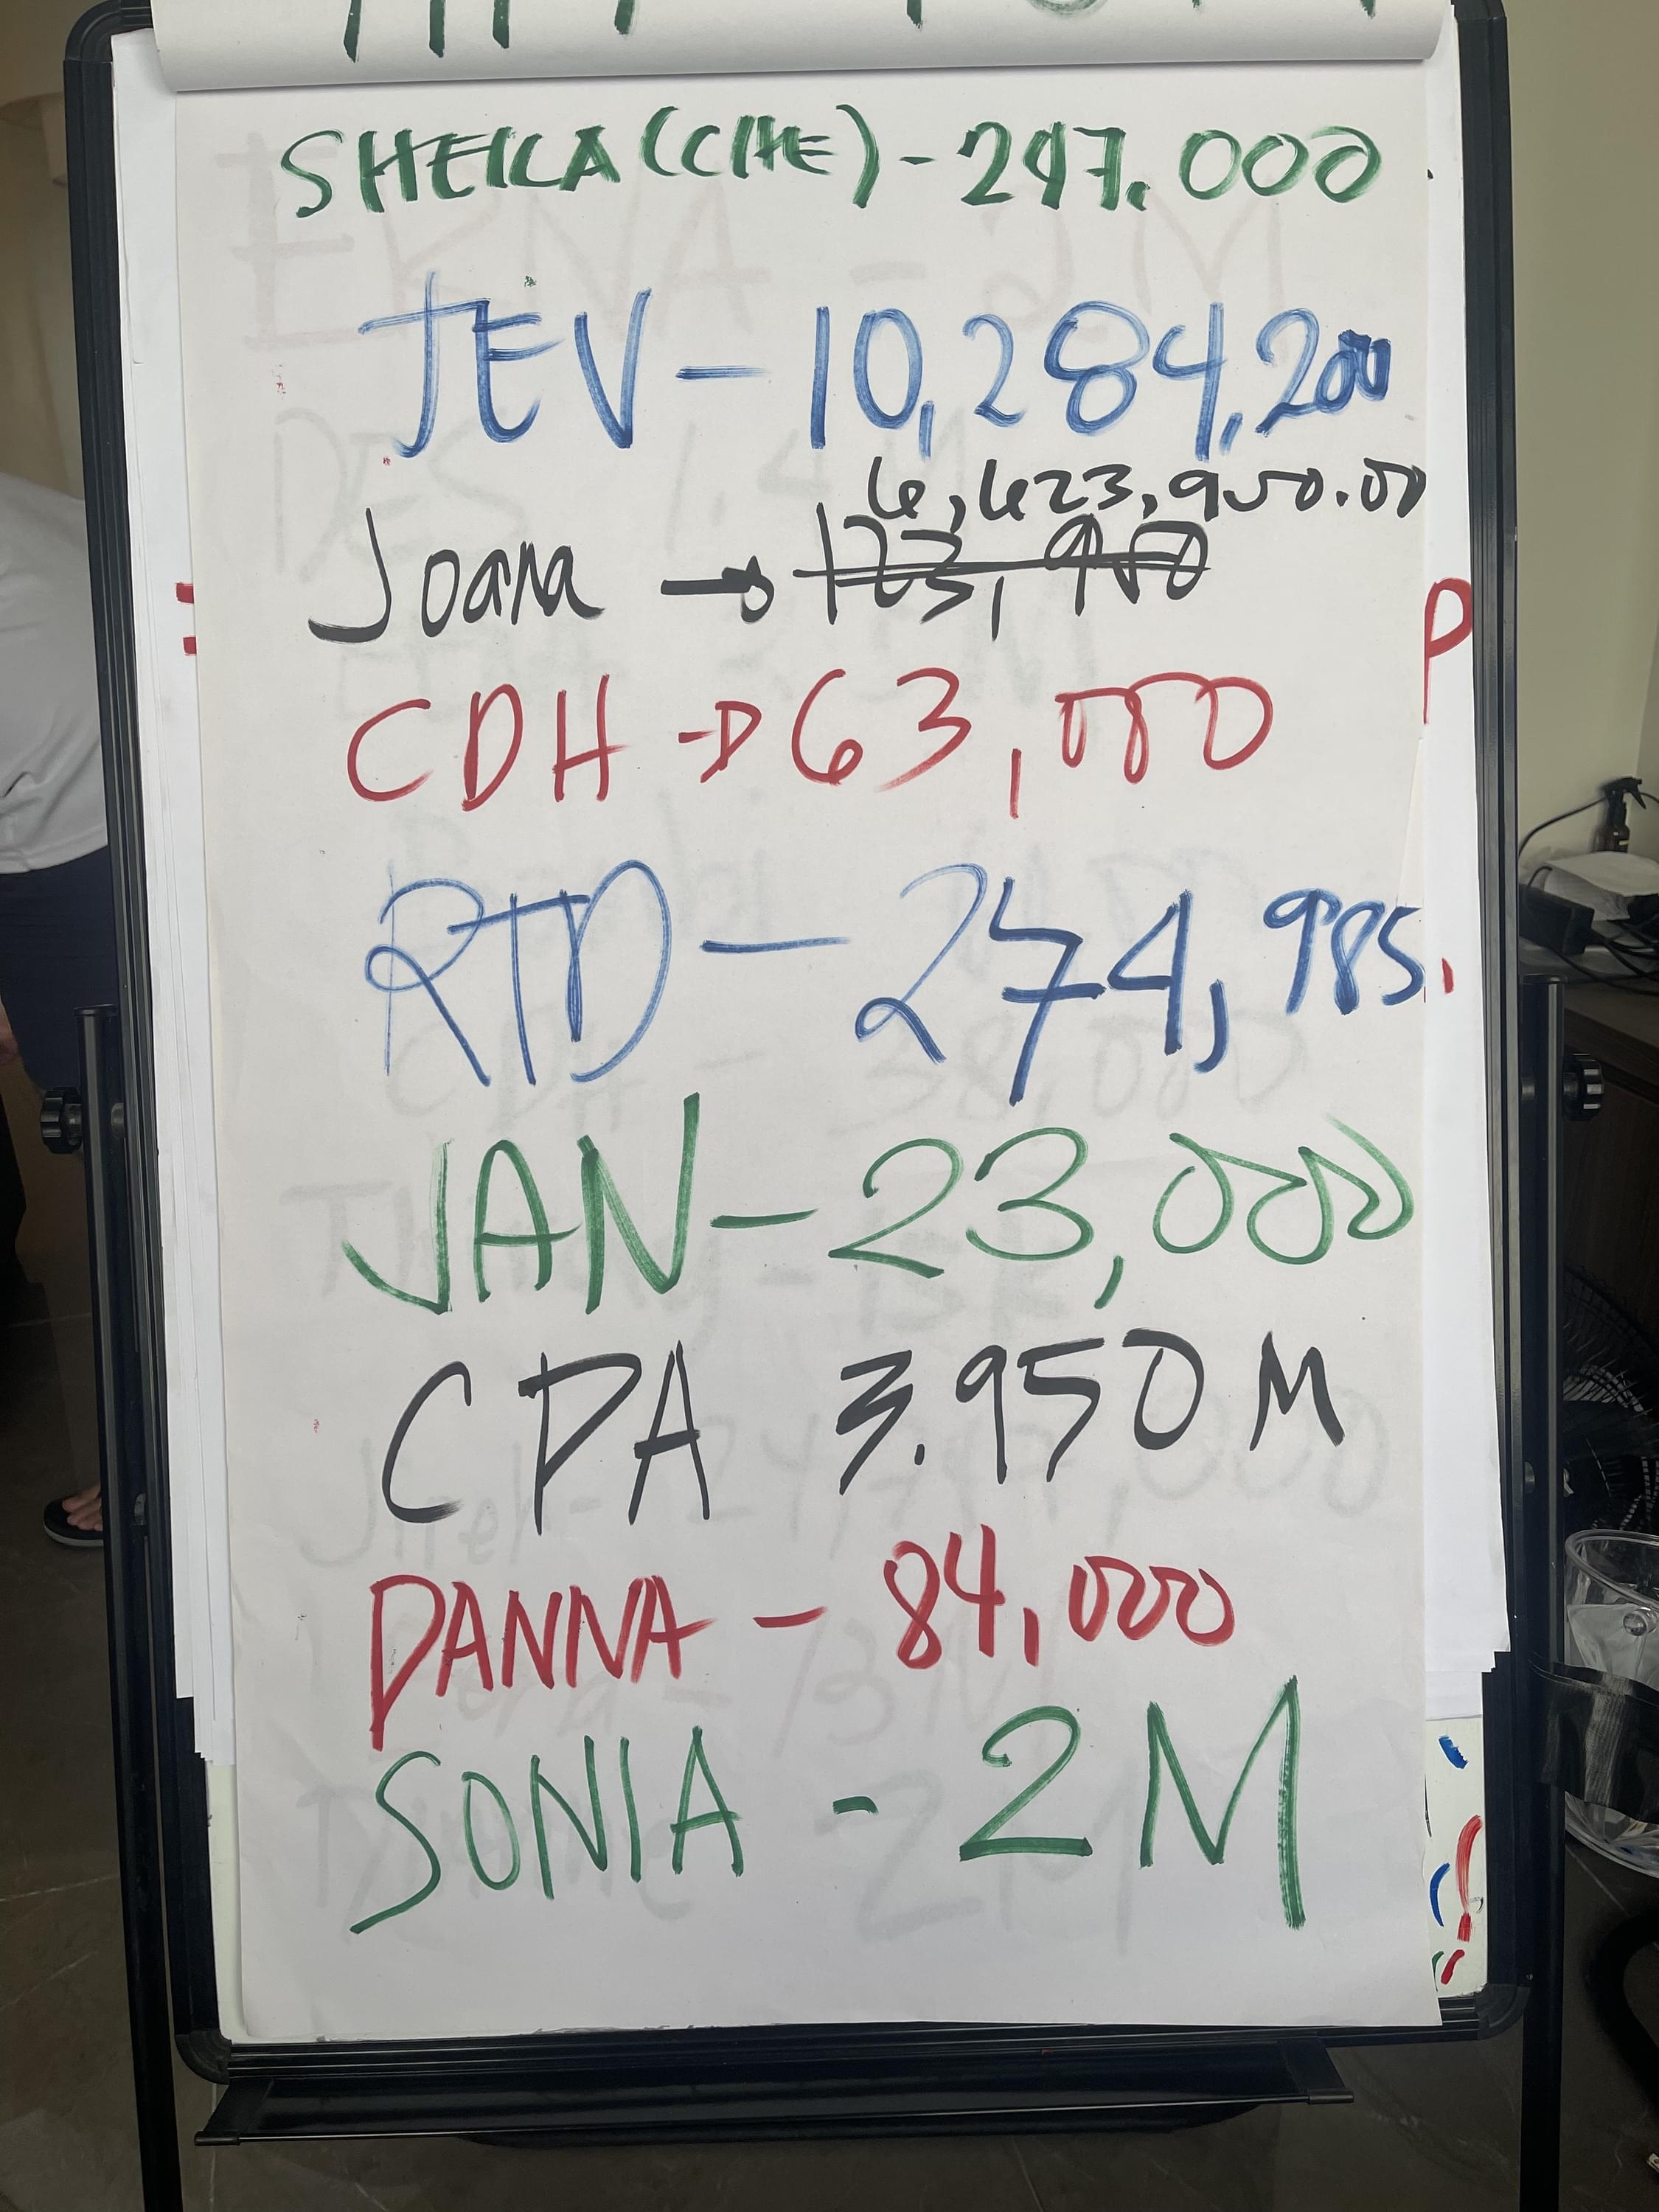 SHEILA (CHE) - 247.000
JEV - 10,284,200
6,623,950.00
Joana → 123,950
CDH → 63,000
RTD - 274,985.
JAN - 23,000
CPA 3.950 M
DANNA - 84,000
SONIA - 2M